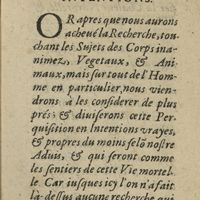 INTENTIONS.
OR apres que nous aurons
acheué la Recherche, tou-
chant les Sujets des Corps ina-
nimez, Vegetaux, & Ani-
maux, mais sur tout de l'Hom-
me en particulier, nous vien-
drons à les considerer de plus
prés; & diuiserons cette Per-
quisition en Intentions vrayes,
& propres du moins selõ nostre
Aduis, & qui seront comme
les sentiers de cette Vie mortel-
le. Car iusques icy l'on n'a fait
là-dessus aucune recherche qui